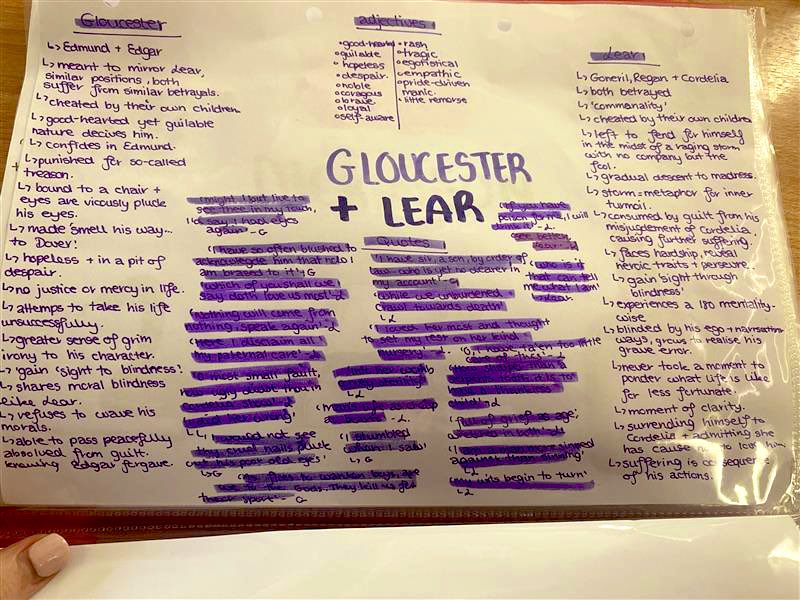 Gloucester
↳ Edmund + Edgar
↳ meant to mirror Lear,
similar positions, both
suffer from similar betrayals.
↳ cheated by their own children
↳ good-hearted yet guilable
nature decives him.
↳ confides in Edmund.
↳ punished for so-called
treason.
↳ bound to a chair +
eyes are vicously pluck
his eyes.
↳ made 'smell his way...
to Dover!
↳ hopeless + in a pit of
despair.
↳ no justice or mercy in life.
↳ attemps to take his life
unsuccessfully.
↳ greater sense of grim
irony to his character.
↳ gain 'sight to blindness'.
↳ shares moral blindness
like Lear.
↳ refuses to wave his
morals.
↳ able to pass peacefully
absolved from guilt.
knowing Edgar forgave.
adjectives
• good-hearted
• guilable
• hopeless
• despair.
• noble
• coragous
• brave.
• loyal
• self-aware
• rash
• tragic
• egotistical
• empathic
• pride-driven
manic.
• little remorse
GLOUCESTER
+ LEAR
'might I but live to
see thee in my touch,
I'd say I had eyes
again' - G
'I have so often blushed to
acknowledge him that now I
am brazed to it' G
'which of you shall we
say doth love us most' - L
'nothing will come from
nothing, speak again' - L
'Here I disclaim all
my paternal care' - L
'O most small fault,
how ugly
'I would not see
thy cruel nails pluck
out his poor old eyes'
↳ G
flies to wanton boys, are
we to Gods... They kill us for
their sport' - G
Quotes
'I have sir, a son, by order of
law - who is yet no dearer in
my account' - G
'while we unburdened
crawl towards death'
- L
'I loved her most and thought
to set my rest on her kind
nursery' - L
'I stumbled
when I saw'
↳ G
'if you have
poison for me, I will
drink it' - L
'see better,
Lear'
'who is it
that can tell
me what I am'
- Lear
'O, I have taken too little
care of this' - L
'full of grief as age;
wretched in both' - L
sinned
against than sinning'
- L
'my wits begin to turn'
- L
Lear
↳ Goneril, Regan + Cordelia
↳ both betrayed
↳ 'commonality'
↳ cheated by their own children
↳ left to fend for himself
in the midst of a raging storm
with no company but the
fool.
↳ gradual descent to madness.
↳ storm = metaphor for inner
turmoil.
↳ consumed by guilt from his
misjudgement of Cordelia.
causing further suffering.
↳ faces hardship, reveal
heroic traits + persevere.
↳ gain 'sight through
blindness'
↳ experiences a 180 mentality-
wise
↳ blinded by his ego +
ways, grows to realise his
grave error.
↳ never took a moment to
ponder what life is like
for less fortunate.
↳ moment of clarity.
↳ surrending himself to
Cordelia + admitting she
has cause to him
↳ suffering is consequence
of his actions.